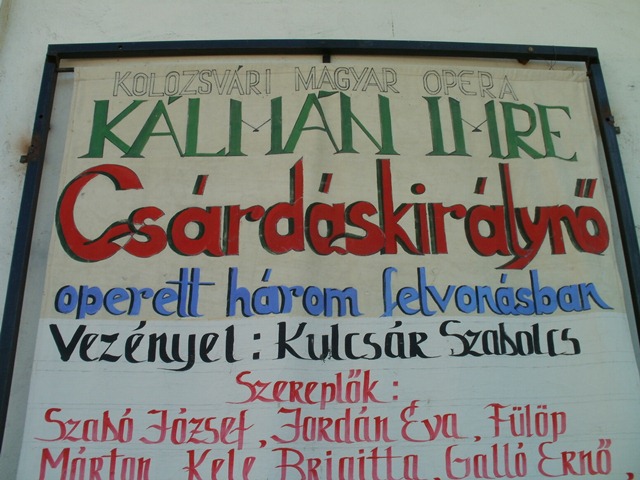 KOLOZSVÁRI MAGYAR OPERA
KÁLMÁN IMRE
Csárdáskirálynő
operett három felvonásban
Vezényel: Kulcsár Szabolcs
Szereplők:
Szabó József, Jordán Éva, Fülöp
Márton, Kele Brigitta, Galló Ernő,